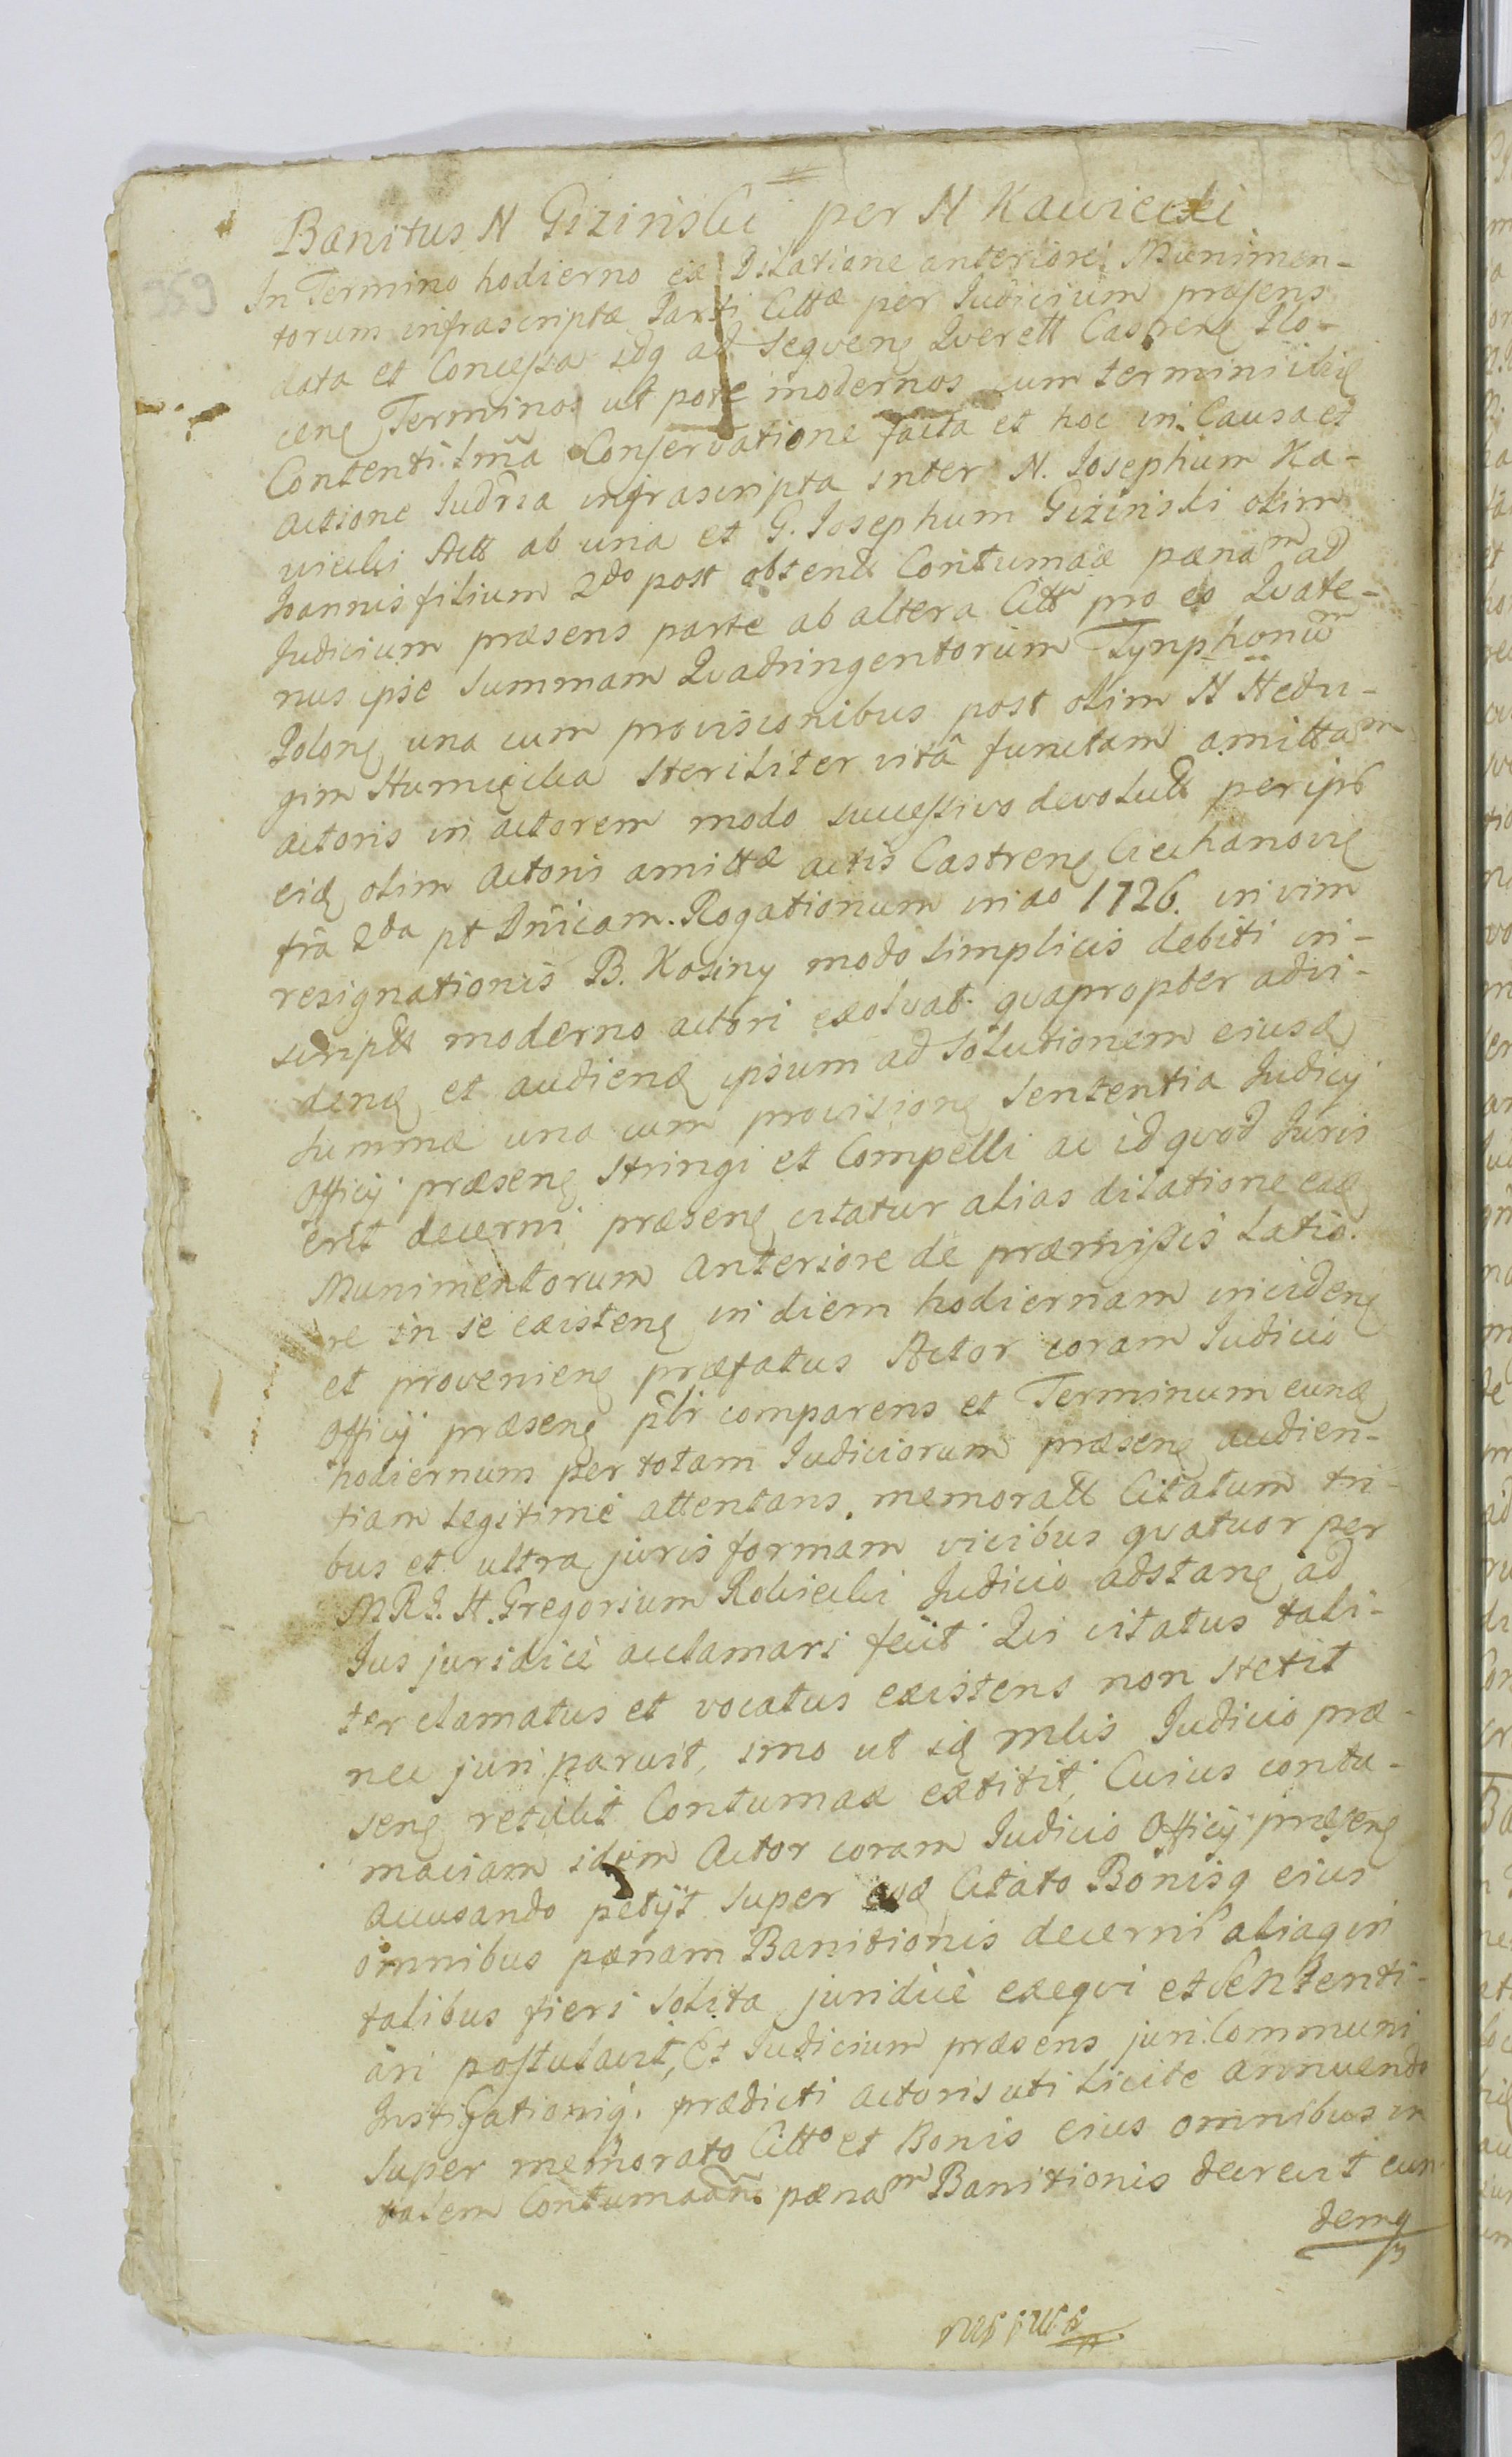 Banitus N Giziński per N Kawiecki
359
In Termino hodierno ex Dilatione anteriore Munimen-
torum infrascriptæ Parti Cittæ per Judicium præsens
data et Concessa idq ad seqveng Qverell Castreng Plo-
ceng Terminos ut pote modernos cum terminis
Contenti lmã Conservatione facta et hoc in Causa et
actione Judria infrascripta inter N. Josephum Ka-
wiecki Act ab una et G. Josephum Giziński olim
Joannis filium 2do post obtent Contumaciæ pænam ad
Judicium præsens parte ab altera Cittm pro eo Qvate-
nus ipse Summam Qvadringentorum Tynphonum
Polong una cum provisionibus post olim N Hedvi-
gim Humięcka steriliter vitâ functam amittam
actoris in actorem modo successivo devolut per ips
eidę olim Actoris amittæ actis Castreng Ciechanovię
fria 2da pt Dnicam Rogationum in ao 1726. in vim
resignationis B. Kosiny modo simplicis debiti in-
script moderno actori exolvat qvapropter ad vi-
dendę et audiendę ipsum ad solutionem eiusdę
summæ una cum provisiong sententia Judicij
Officij præseng stringi et Compelli ac id qvod Juris
erit decerni præseng citatur alias dilatione eadę
Munimentorum anteriore de præmissis latio.
re in se existeng in diem hodiernam incideng
et provenieng præfatus Actor coram Judicio
Officij præseng plr comparens et Terminum eundę
hodiernum per totam Judiciorum præseng audien-
tiam legitimè attentans memorall Citatum tri-
bus et ultra juris formam vicibus qvatuor per
MRJ. N. Gregorium Rokicki Judicio adstang ad
Jus juridicè acclamari fecit Qvi citatus tali-
ter clamatus et vocatus existens non stetit
nec juri paruit, imo ut idę mlis Judicio præ-
seng retulit Contumax extitit, Cuius contu-
maciam idem Actor coram Judicio Officij præseng
accusando petijt super eodę Citato Bonisq eius
omnibus pænam Banitionis decerni aliaq in
talibus fieri solita juridicè exeqvi et Sententi-
ari postulavit, Et Judicium præsens juri Communi
Instigationiq. prædicti actoris uti licite annuendo
super memorato Citto et Bonis eius omnibus in
talem Contumaciam pænam Banitionis decrevit eun
demq